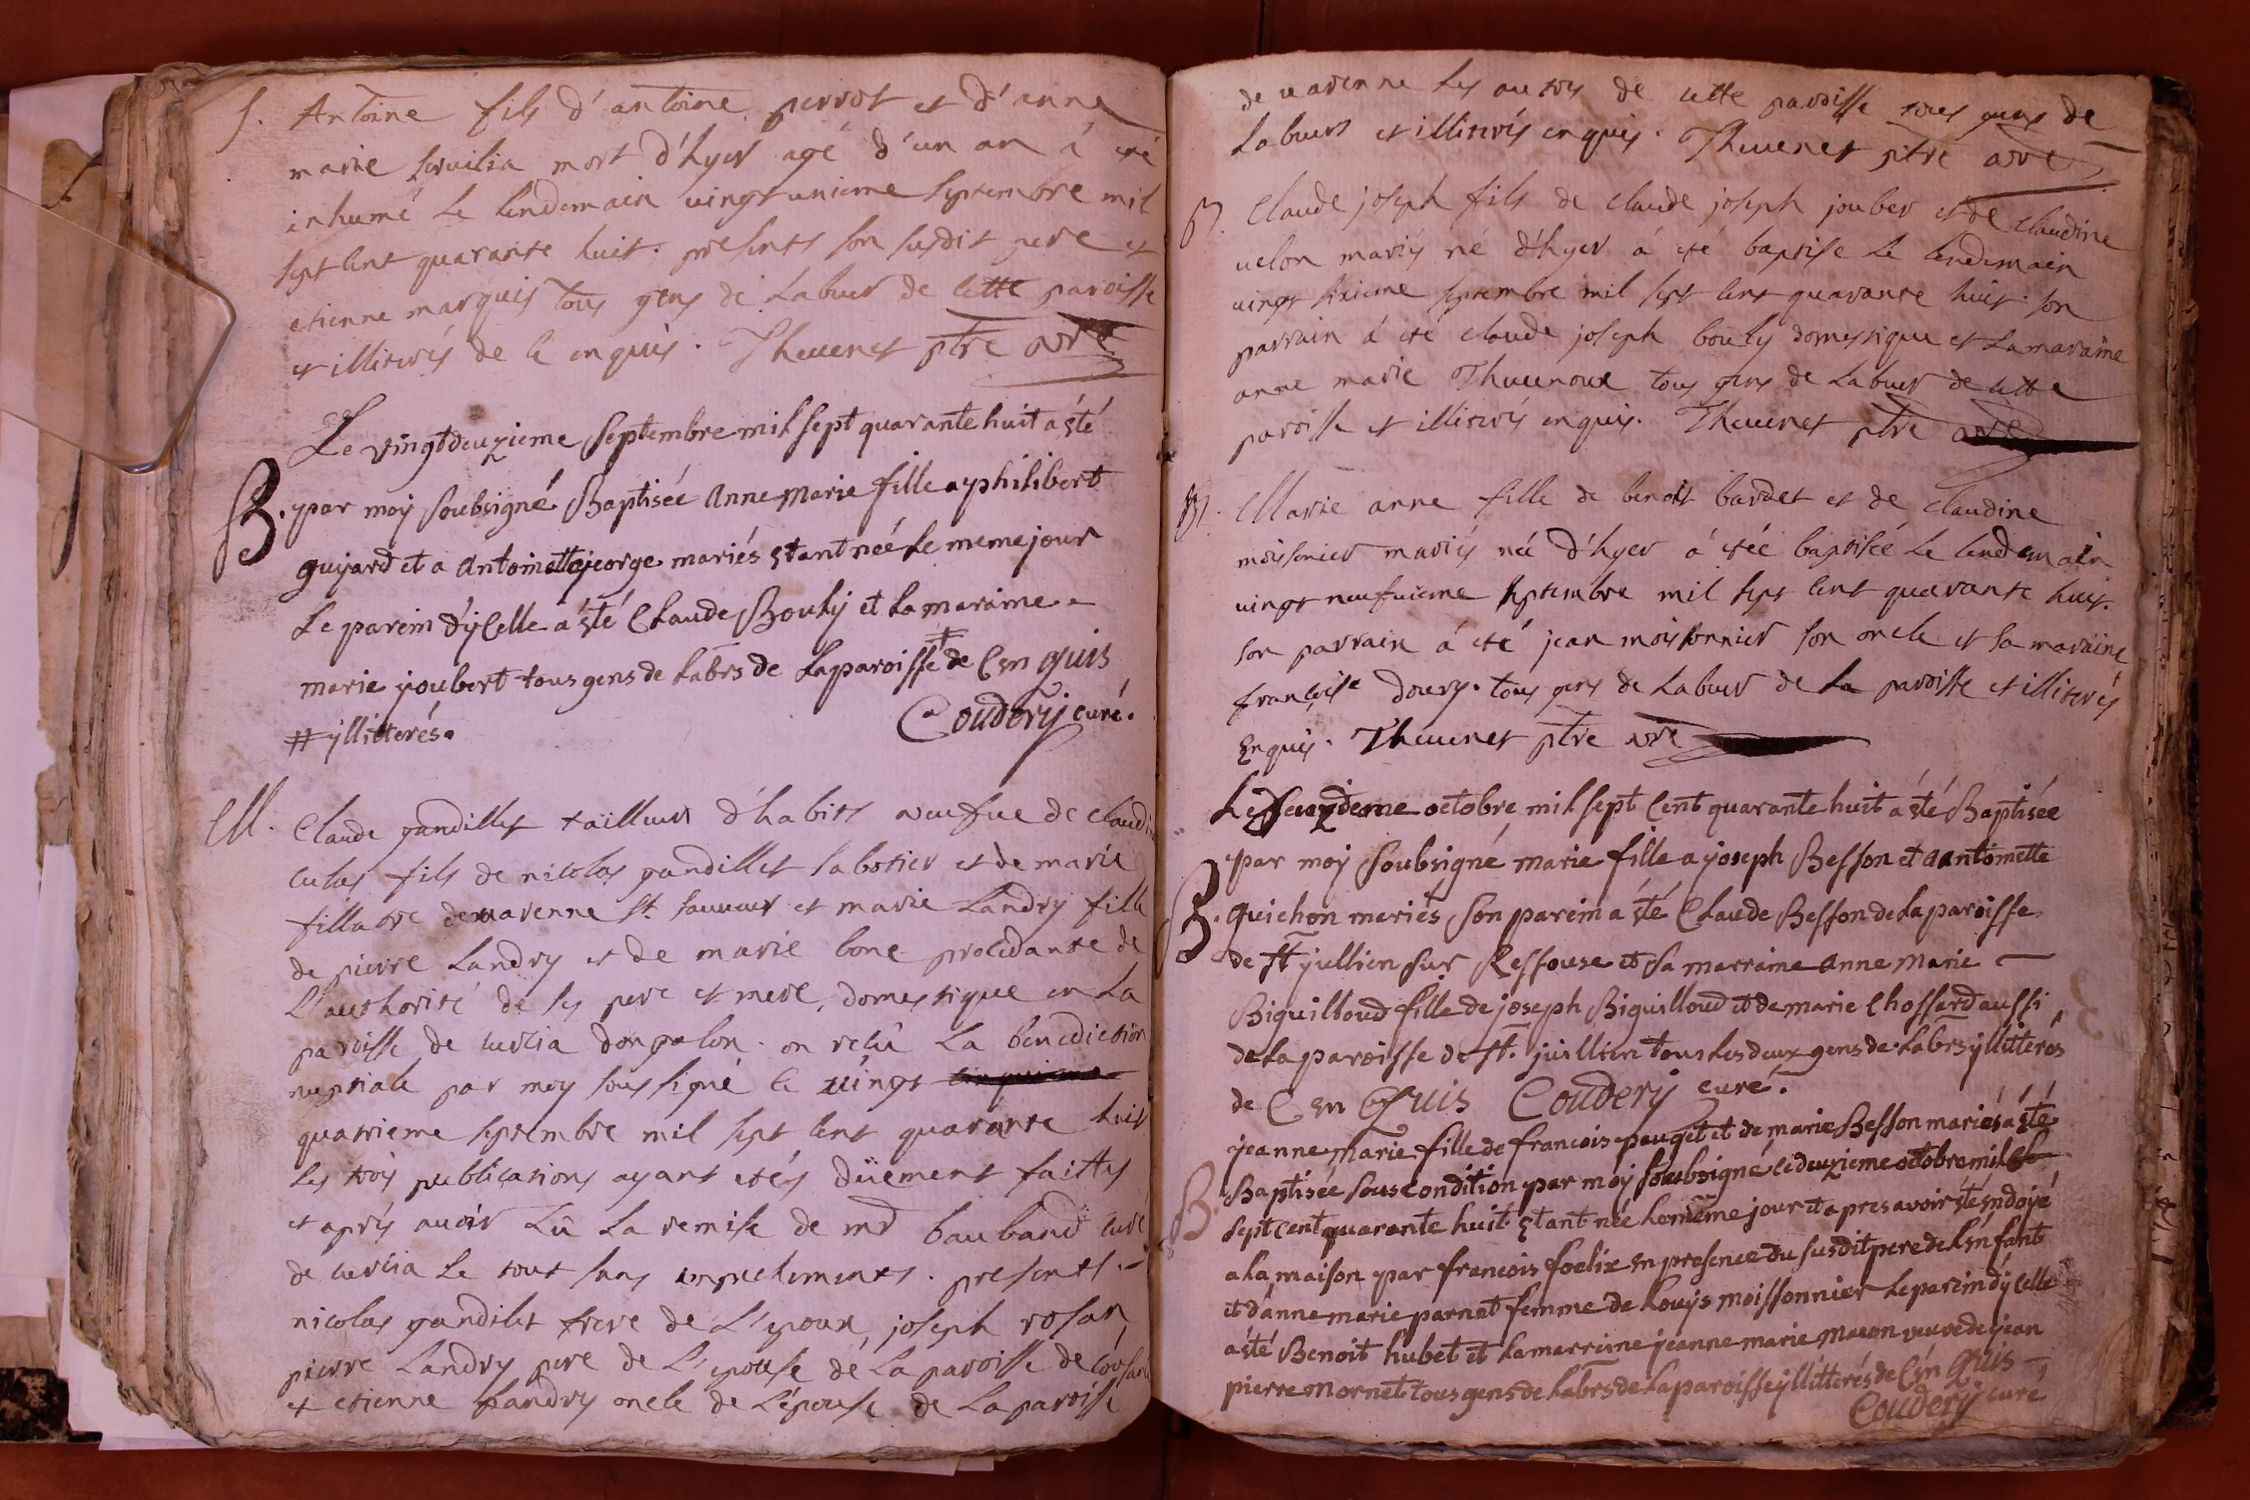 S. Antoine fils d'antoine perrot et d'anne
marie servilia mort d'hyer agé d'un an á eté
inhumé le lendemain vingt unieme septembre mil
sept cent quarante huit. presents son susdit pere et
etienne marquis tous gens de labeur de cette paroisse
et illiterés de ce enquis. Thevenet ptre
Le vingt deuzieme Septembre mil sept quarante huit a été
B. par moy soubsigné Baptisée Anne Marie fille a philibert
guyard et a Antoinette george mariés etant née le meme jour
Le parein d'ycelle a été Claude Bouly et la maraine
marie joubert tous gens de labrs de la paroisse # de C en quis
# yllitterés. Coudery curé.
M. Claude gandillet tailleur d'habits veufue de claudi
cusas fils de nicolas gandillet sabotier et de marie
fillatre de varenne st. sauveur et marie Landry fille
de pierre Landry et de marie bone procedante de
l'authorité de ses pere et mere, domestique en la
paroisse de curcia dongalon. on recû la benediction
nuptiale par moy soussigné le vingt
quatrieme septembre mil sept cent quarante huit
les trois publications ayant etés düement faittes
et aprés avoir Lû la remise de mr bauband curé
de curcia le tout sans empechements. presents.
nicolas gandilet frere de l'epoux, joseph rosan,
pierre Landry pere de l'epouse de la paroisse de
et etienne Landry oncle de l'épouse de la paroisse
de varenne les autres de cette paroisse tous gens de
labeur et illiterés enquis. Thevenet ptre
B. Claude joseph fils de claude joseph jouber et de claudine
velon mariés né d'hyer á eté baptise le lendemain
vingt sixieme septembre mil sept cent quarante huit. son
parrain á eté claude joseph bouly domestique et la maraine
anne marie Thevenoux tous gens de labeur de cette
paroisse et illiterés enquis. Thevenet ptre
B. Marie anne fille de benoit bardet et de claudine
moissonier mariés née d'hyer á etée baptisée le lendemain
vingt neufvieme septembre mil sept cent quarante huit.
son parrain á eté jean moissonnier son oncle et sa maraine
francoise doury. tous gens de labeur de la paroisse et illiterés
Enquis. Thevenet ptre
Le deuzieme octobre mil sept cent quarante huit a été Baptisée
par moy soubsigné marie fille a joseph Besson et a antoinette
B. guichon mariés son parein a été Claude Besson de la paroisse
de st jullien sur Ressouse et sa marraine Anne Marie
Biguilloud fille de joseph Biguilloud et de marie Chossard aussi
de la paroisse de st. juillien tous les deux gens de labrs yllitterés
de C en Quis Coudery curé.
jeanne marie fille de francois pauget et de marie Besson mariés a été
B. Baptisée sous condition par moy soubsigné le deuzieme octobre mil
sept cent quarante huit etant née le meme jour et apres avoir été endoyé
a la maison par francois foelix en presence du susdit pere de l'enfant
et d'anne marie parnet femme de louys moissonnier le parein d'ycelle
a été Benoit hubet et la marreine jeanne marie Macon veuve de jean
pierre mornet tous gens de labrs de la paroisse yllitterés de C en Quis
Coudery curé